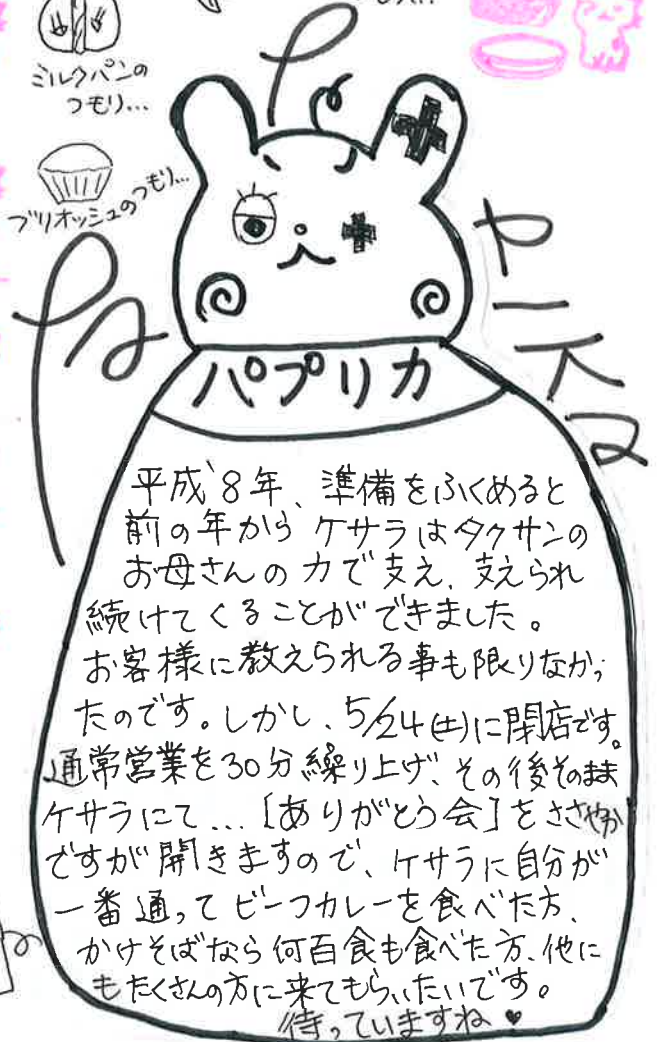 ミルクパンの
つもり...
ブリオッシュのつもり...
パプリカ
平成8年、準備をふくめると
前の年から ケサラはタクサンの
お母さんの力で支え、支えられ
続けてくることができました。
お客様に教えられる事も限りなかっ
たのです。しかし、5/24(土)に閉店です。
通常営業を30分繰り上げ、その後そのまま
ケサラにて...[ありがとう会]をささやか
ですが開きますので、ケサラに自分が
一番通ってビーフカレーを食べた方、
かけそばなら何百食も食べた方、他に
もたくさんの方に来てもらいたいです。
待っていますね♥